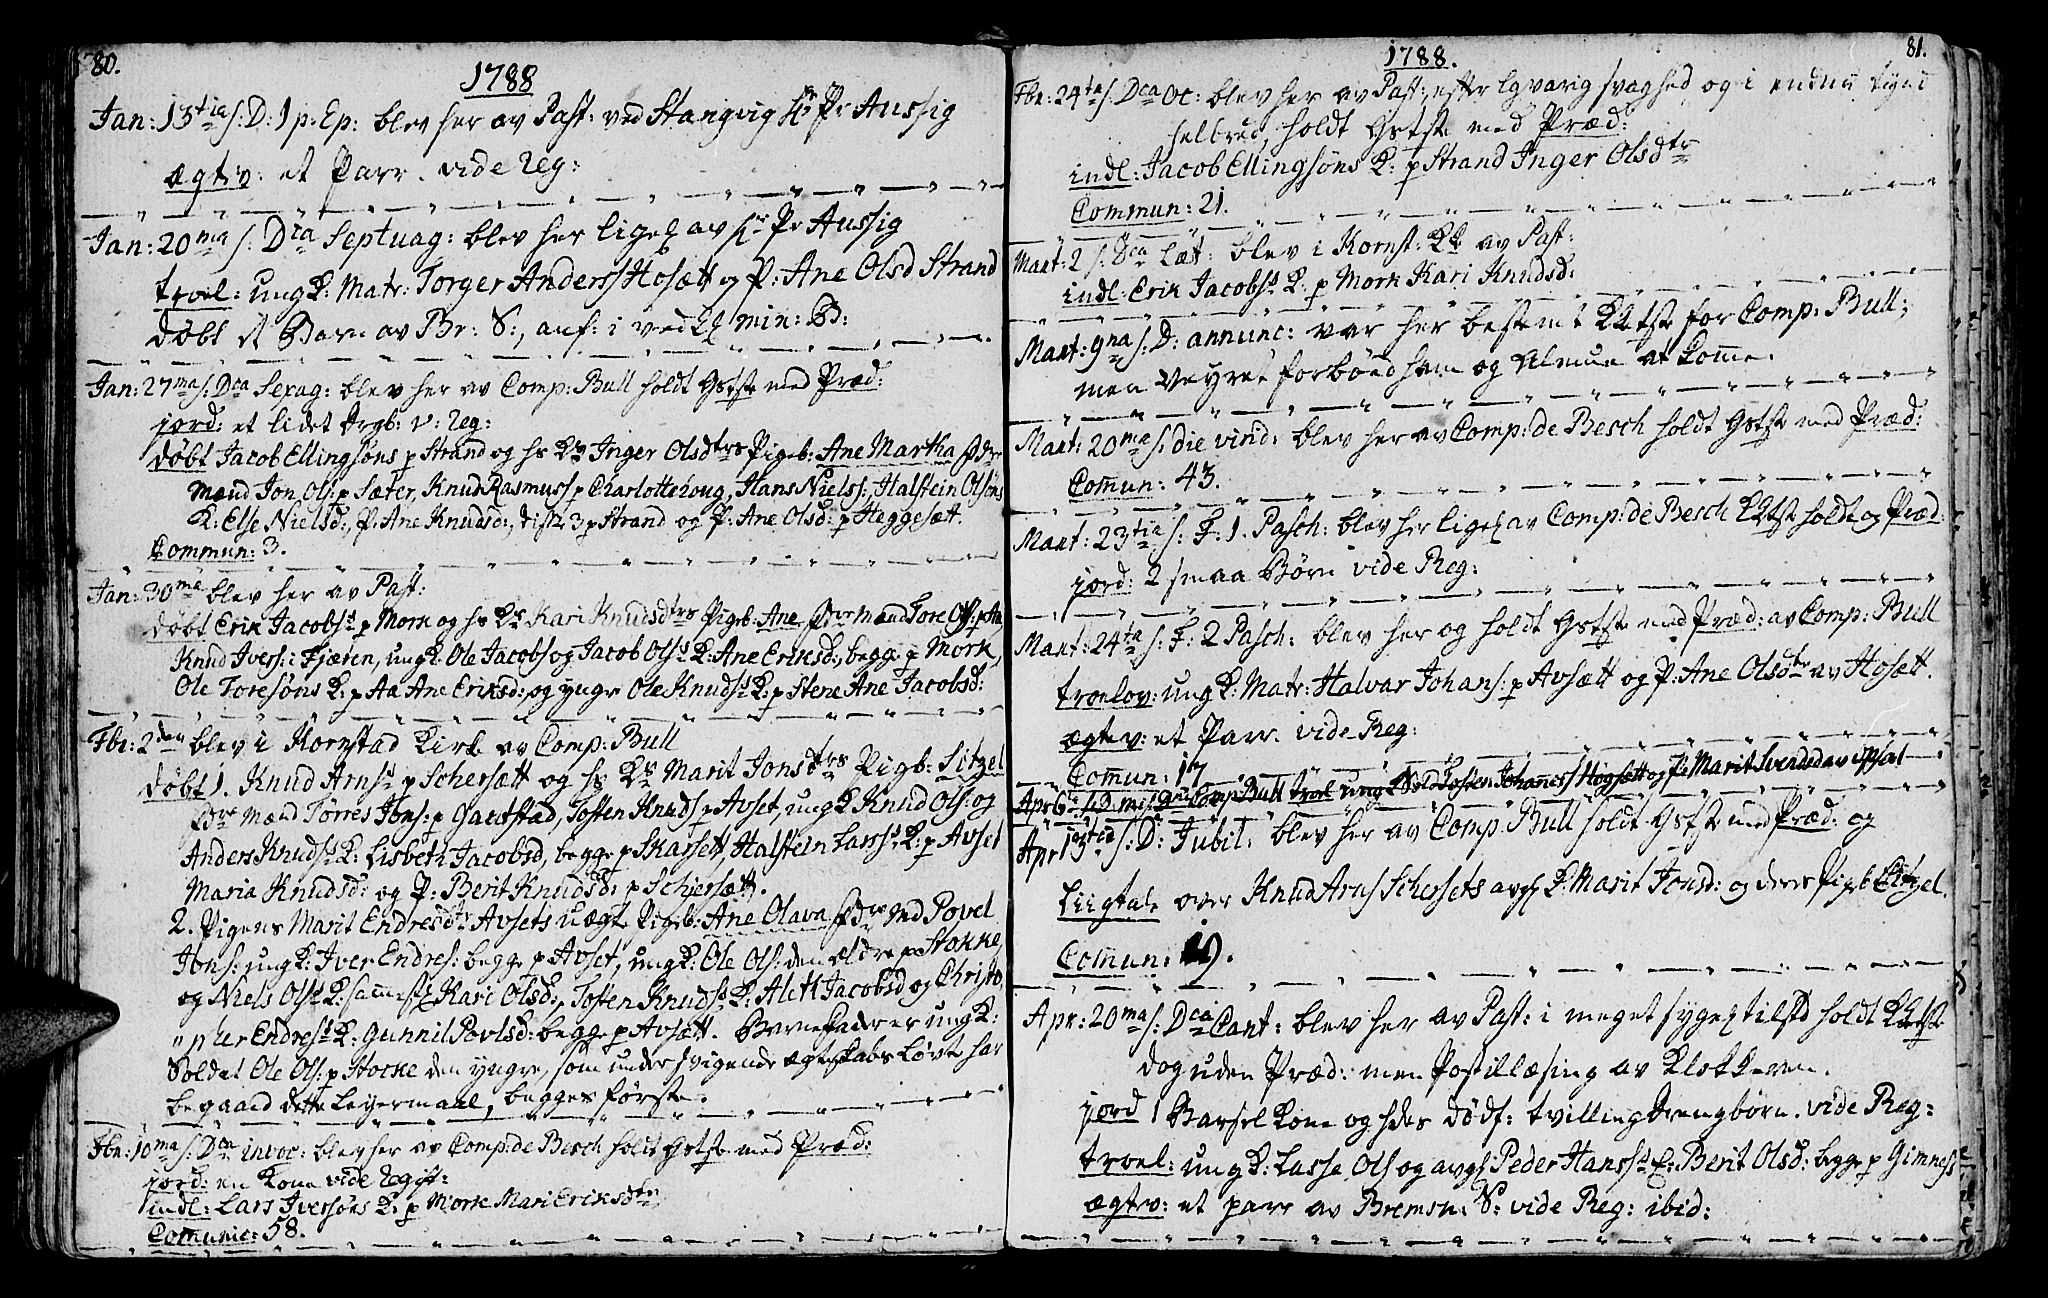 80.
1788
Jan: 13tia s: D: 1 p: Ep: blev her av Past: ved Stangvig Hr Pr Aussig
ægtev: et Parr. vide Reg:
Jan: 20ma s: Dca Septuag: blev her ligel av Hr Pr Aussig
troel: ungK: Matr: Torger Anders: Hosætt og P: Ane Olsd Strand
døbt et Barn av Br: S:, anf: i min: B:
Jan: 27ma s: Dca Sexag: blev her av Comp: Bull holdt Gstste med Præd:
jord: et lidet Drgb: v: Reg:
døbt Jacob Ellingsøns p Strand og hs K Inger Olsdtrs Pigeb: Ane Martha
Mænd Jon Ols: p Sæter, Knud Rasmuss p Charlottehoug, Hans Niels:, Halstein Olsøns
K: Else Nielsd:, P: Ane Knudsd:, disse 3 p Strand og P: Ane Olsd: p Heggesætt.
Commun: 3.
Jan: 30ma blev her av Past:
døbt Erik Jacobs: p Mork og hs Ks Kari Knudsdtrs Pigeb: Ane Mænd Tore Ols: p Aa,
Knud Ivers: i Fjæren, ungK: Ole Jacobs og Jacob Ols: K: Ane Eriksd:, begge p Mork,
Ole Toresøns K: p Aa Ane Eriksd:, og yngre Ole Knuds: K: p Stene Ane Jacobsd:
Fbr: 2den blev i Kornstad Kirk av Comp: Bull
døbt 1. Knud Arns: p Schersætt og hs Ks Marit Jonsdtrs Pigb: Sitzel
Mænd Tørres Jons: p Gautstad, Tosten Knuds p Avset, ungK Knud Ols: og
Anders Knuds: K: Lisbeth Jacobsd, begge p Skarsett, Halstein Lars: K: p Avset
Maria Knudsd: og P: Berit Knudsd: p Schjersætt.
2. Pigens Marit Endresdtr Avsets uægte Pigeb: Ane Olava Mænd Povel
Jons: ungK: Iver Endres: begge p Avset, ungK: Ole Ols: den eldre p Stokke
og Niels Ols: K: sammest: Kari Olsd:, Tosten Knuds: K: Aleth Jacobsd og Christo,
"pher Endres: K: Gunnil Povlsd: begge p Avsætt. Barnefader er ungK:
Soldat Ole Ols: p Stocke den yngre, som under svigende ægteskabs løvte har
begaaed dette Leyermaal, begges første.
Fbr: 10ma s: Dca invoc: blev her av Comp: de Besch holdt Gstste med Præd:
jord: en Kone vide Regist:
indl: Lars Iversøns K: p Mork Mari Eriksdtr
Comunic: 58.
81.
1788.
Fbr: 24ta s: Dca Oc: blev her av Past:, efter lgvarig svaghed og i endnu
helbred, holdt Gstste med Præd:
indl: Jacob Ellingsøns K: p Strand Inger Olsdtr
Commun: 21.
Mart: 2 s: Dca Læt: blev i Kornst: Kk av Past:
indl: Erik Jacobs: K: p Mork Kari Knudsd:
Mart: 9na s: D: annunc: var her bestemt KKtste for Comp: Bull;
men Veyret forbøed ham og Almue at komme.
Mart: 20ma s: die virid: blev her av Comp: de Besch holdt Gstste med Præd:
Comun: 43.
Mart: 23tia s: F: 1. Pasch: blev her ligel av Comp: de Besch KKtste holdt og Præd:
jord: 2 smaa Børn vide Reg:
Mart: 24ta s: F: 2 Pasch: blev her og holdt Gstste med Præd: av Comp: Bull
troelov: ungK: Matr: Halvar Johans: p Avsætt og P: Ane Olsdtr av Hosætt.
ægtev: et Parr. vide Reg:
Comun: 17
Apr: 6 s: D: mis: Comp: Bull troel ungK Sold: Tosten Johannes: Høgsætt og P: Marit Svendsd av Ipsal
Apr 13tia s: D: Jubil: blev her av Comp: Bull holdt Gstste med Præd: og
Liigtale over Knud Arns Schersets avg K: Marit Jonsd: og deres Pigeb Sitzel.
Comun: 19.
Apr: 20ma s: Dca Cant: blev her av Past: i meget sygel tilstd holdt KKtste
dog uden Præd: men Postillæsing av Klokkeren.
jord 1 Barsel Kone og hdes dødf: tvilling Drengbørn. vide Reg:
troel: ungK: Lasse Ols og avg Peder Hans: E: Berit Olsd: begge p Gimnes
ægtev: et parr av Bremsn: S: vide Reg: ibid: